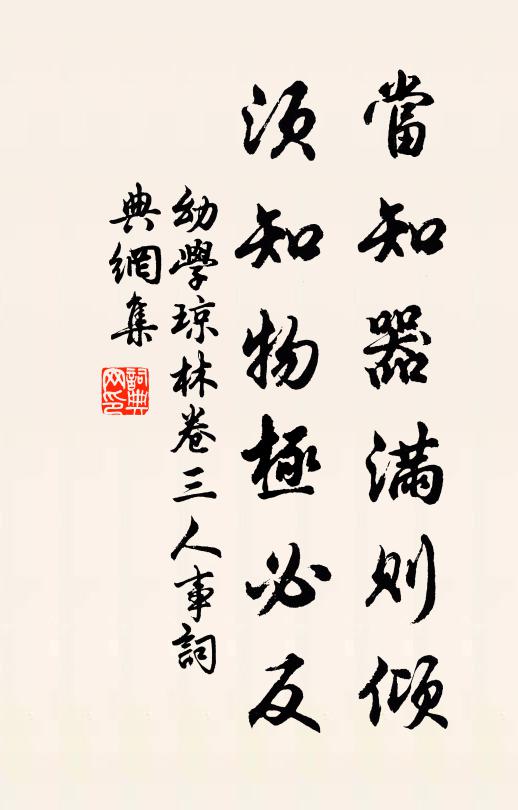 當知器滿則傾
須知物極必反
幼學琼林卷三人事詞
典網集
詞典
网印